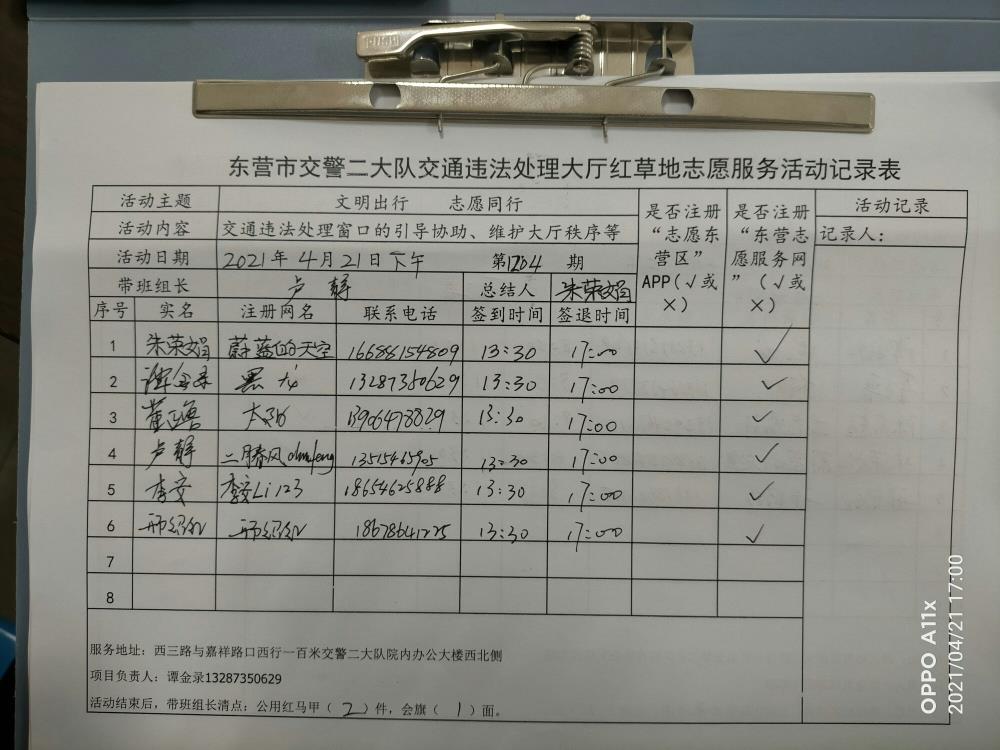 东营市交警二大队交通违法处理大厅红草地志愿服务活动记录表
活动主题 文明出行 志愿同行 是否注册“志愿东营区”APP(√或×) 是否注册“东营志愿服务网”(√或×) 活动记录
活动内容 交通违法处理窗口的引导协助、维护大厅秩序等 记录人：
活动日期 2021年4月21日下午 第1204期
带班组长 卢静 总结人 朱荣娟
序号 实名 注册网名 联系电话 签到时间 签退时间
1 朱荣娟 蔚蓝的天空 16688154809 13:30 17:00 √
2 谭金录 黑龙 13287350629 13:30 17:00 √
3 13906473829 13:30 17:00 √
4 卢静 13:30 17:00 √
5 李安 李安Li123 18654625888 13:30 17:00 √
6 18678641225 13:30 17:00 √
7
8
服务地址：西三路与嘉祥路口西行一百米交警二大队院内办公大楼西北侧
项目负责人：谭金录13287350629
活动结束后，带班组长清点：公用红马甲（2）件，会旗（1）面。
OPPO A11x
2021/04/21 17:00